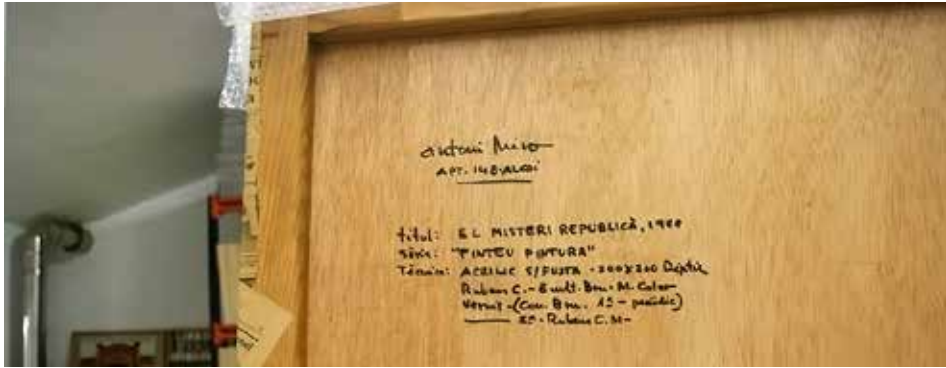 antoni Miro
APT. 148-ALCOI
titol: EL MISTERI REPUBLICÀ, 1988
sèrie: "PINTEU PINTURA"
Tècnica: ACRÍLIC S/FUSTA - 200X200 Díptic
Ruben C. - Bm. M.
Vernis - (Com. Bm. 15 -
Ruben C. M-